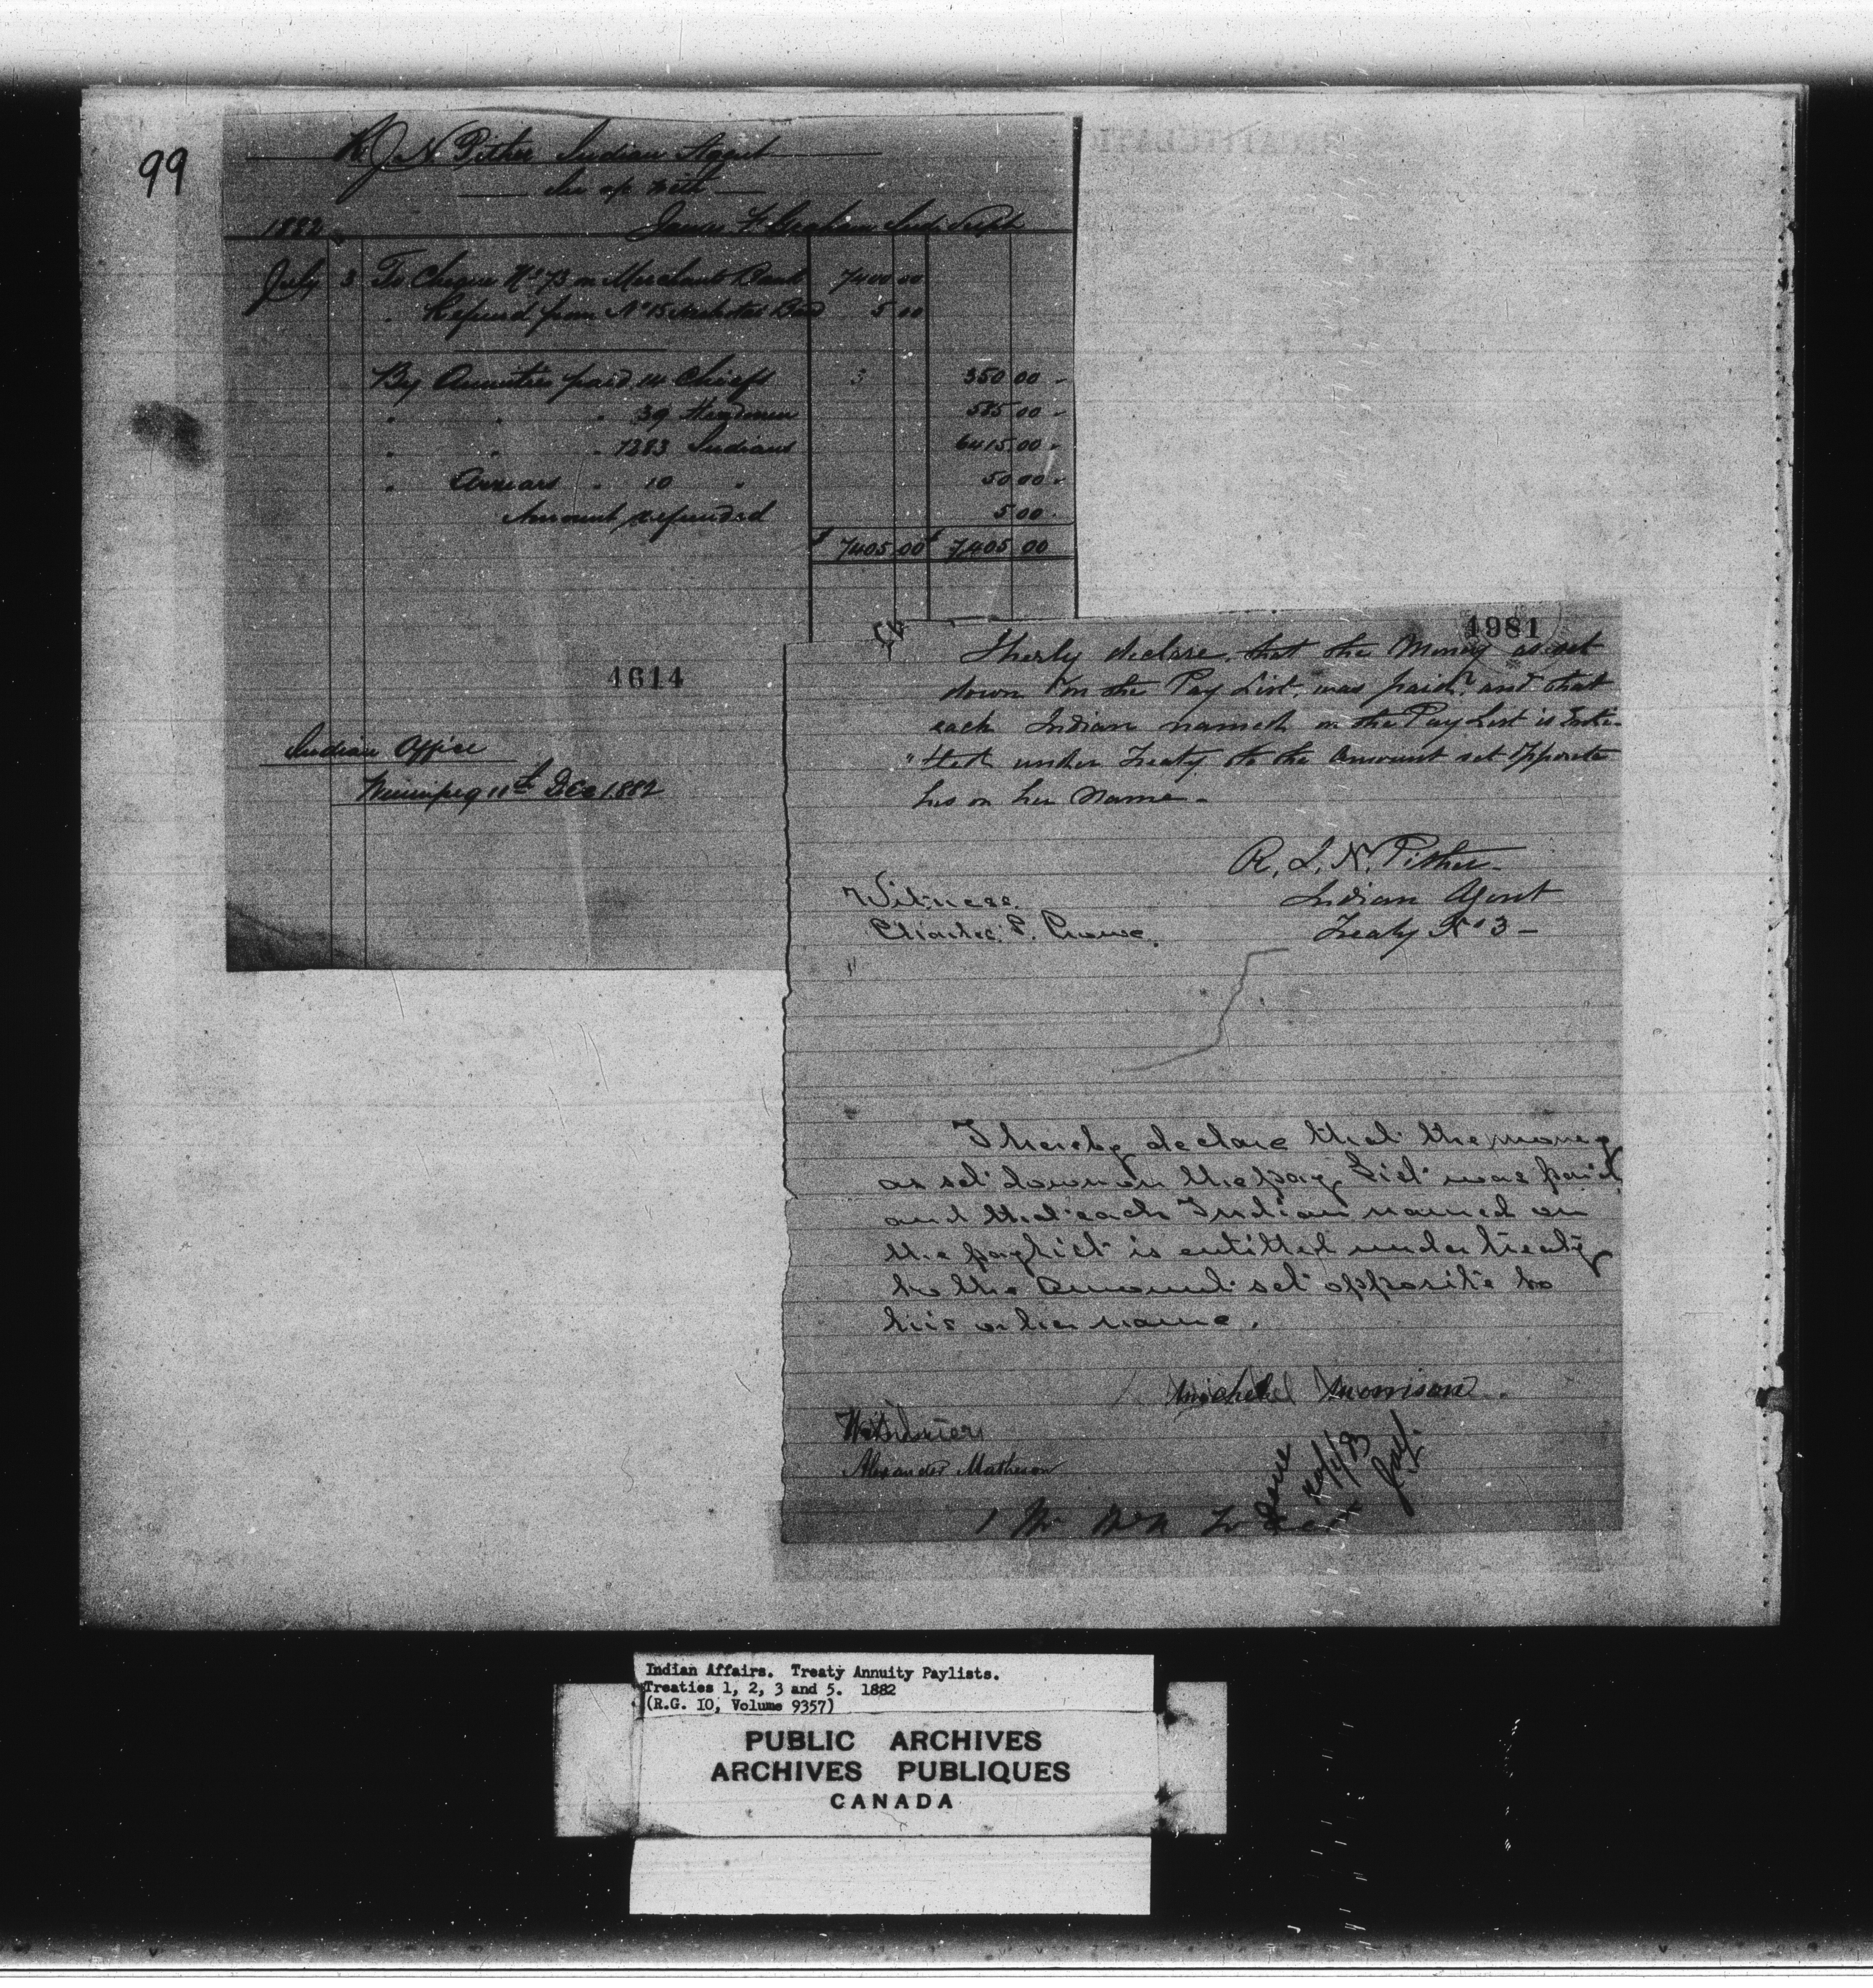 99
R J N Pither Indian Agent
In a/c with
1882 James F. Graham Ind. Supt
July 3 To Cheque No 73 on Merchants Bank 7400 00
" Refund from No 15 Band 5 00
By Annuities paid 14 Chiefs 350 00
" " " 39 Headmen 585 00
" " " 1283 Indians 6415 00
" Arrears " 10 " 50 00
Amount refunded 5 00
$ 7405 00 $ 7405 00
4614
Indian Office
Winnipeg 11th Dec 1882
4981
I herely declare, that the Money as set
down on the Pay List, was paid, and that
each Indian named on the Pay List is Enti-
"tled under Treaty to the Amount set Opposite
his or her Name -
R. J. N. Pither
Indian Agent
Treaty No 3 -
Witness
Charles P. Crowe.
I hereby declare that the money
as set down on the pay List was paid
and that each Indian named on
the paylist is entitled under treaty
to the Amount set opposite to
his or her name.
Michel Morrison.
Witness
Alexander Matheson
Indian Affairs. Treaty Annuity Paylists.
Treaties 1, 2, 3 and 5. 1882
(R.G. 10, Volume 9357)
PUBLIC ARCHIVES
ARCHIVES PUBLIQUES
CANADA